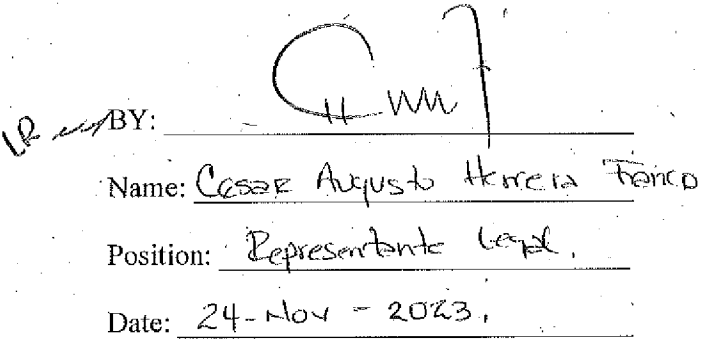 LR BY:
Name: Cesar Augusto Herrera Franco
Position: Representante Legal.
Date: 24-Nov-2023.